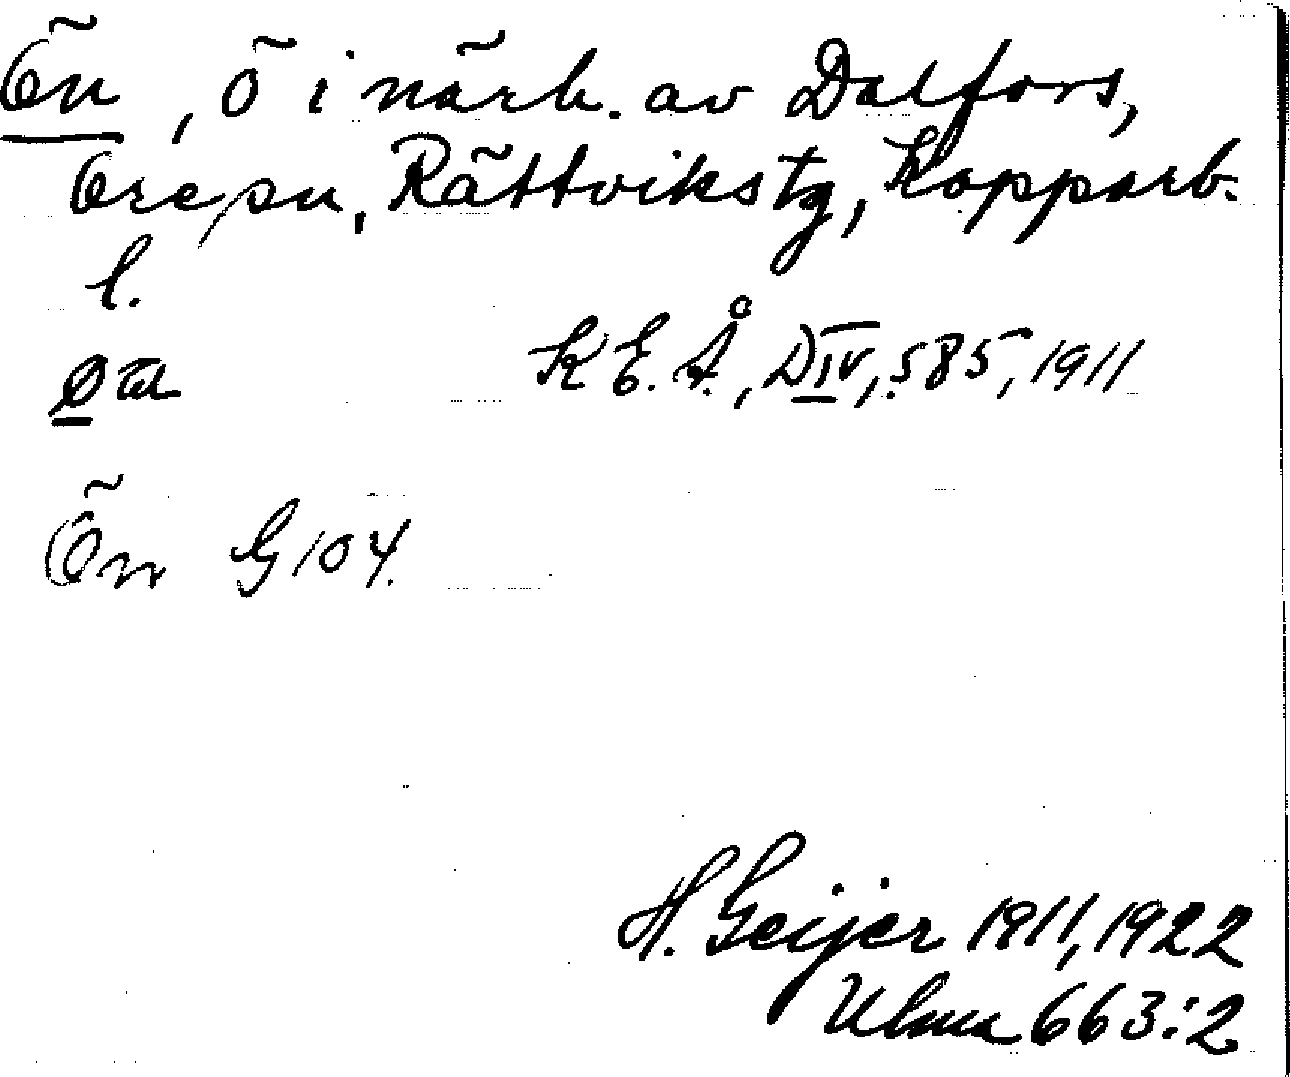 Ön, ö i närh. av Dalfors,
Ore sn, Rättviks tg, Kopparb.
l.
K E. Å., D IV, s 85, 1911
Ön G 104.
H. Geijer 1911, 1922
Ulma 663:2